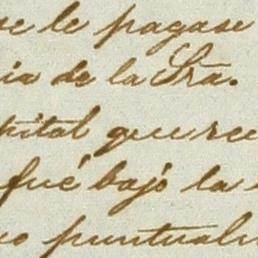 se le pagase
ia de la Sra.
pital que re
fué bajó la
o puntualm